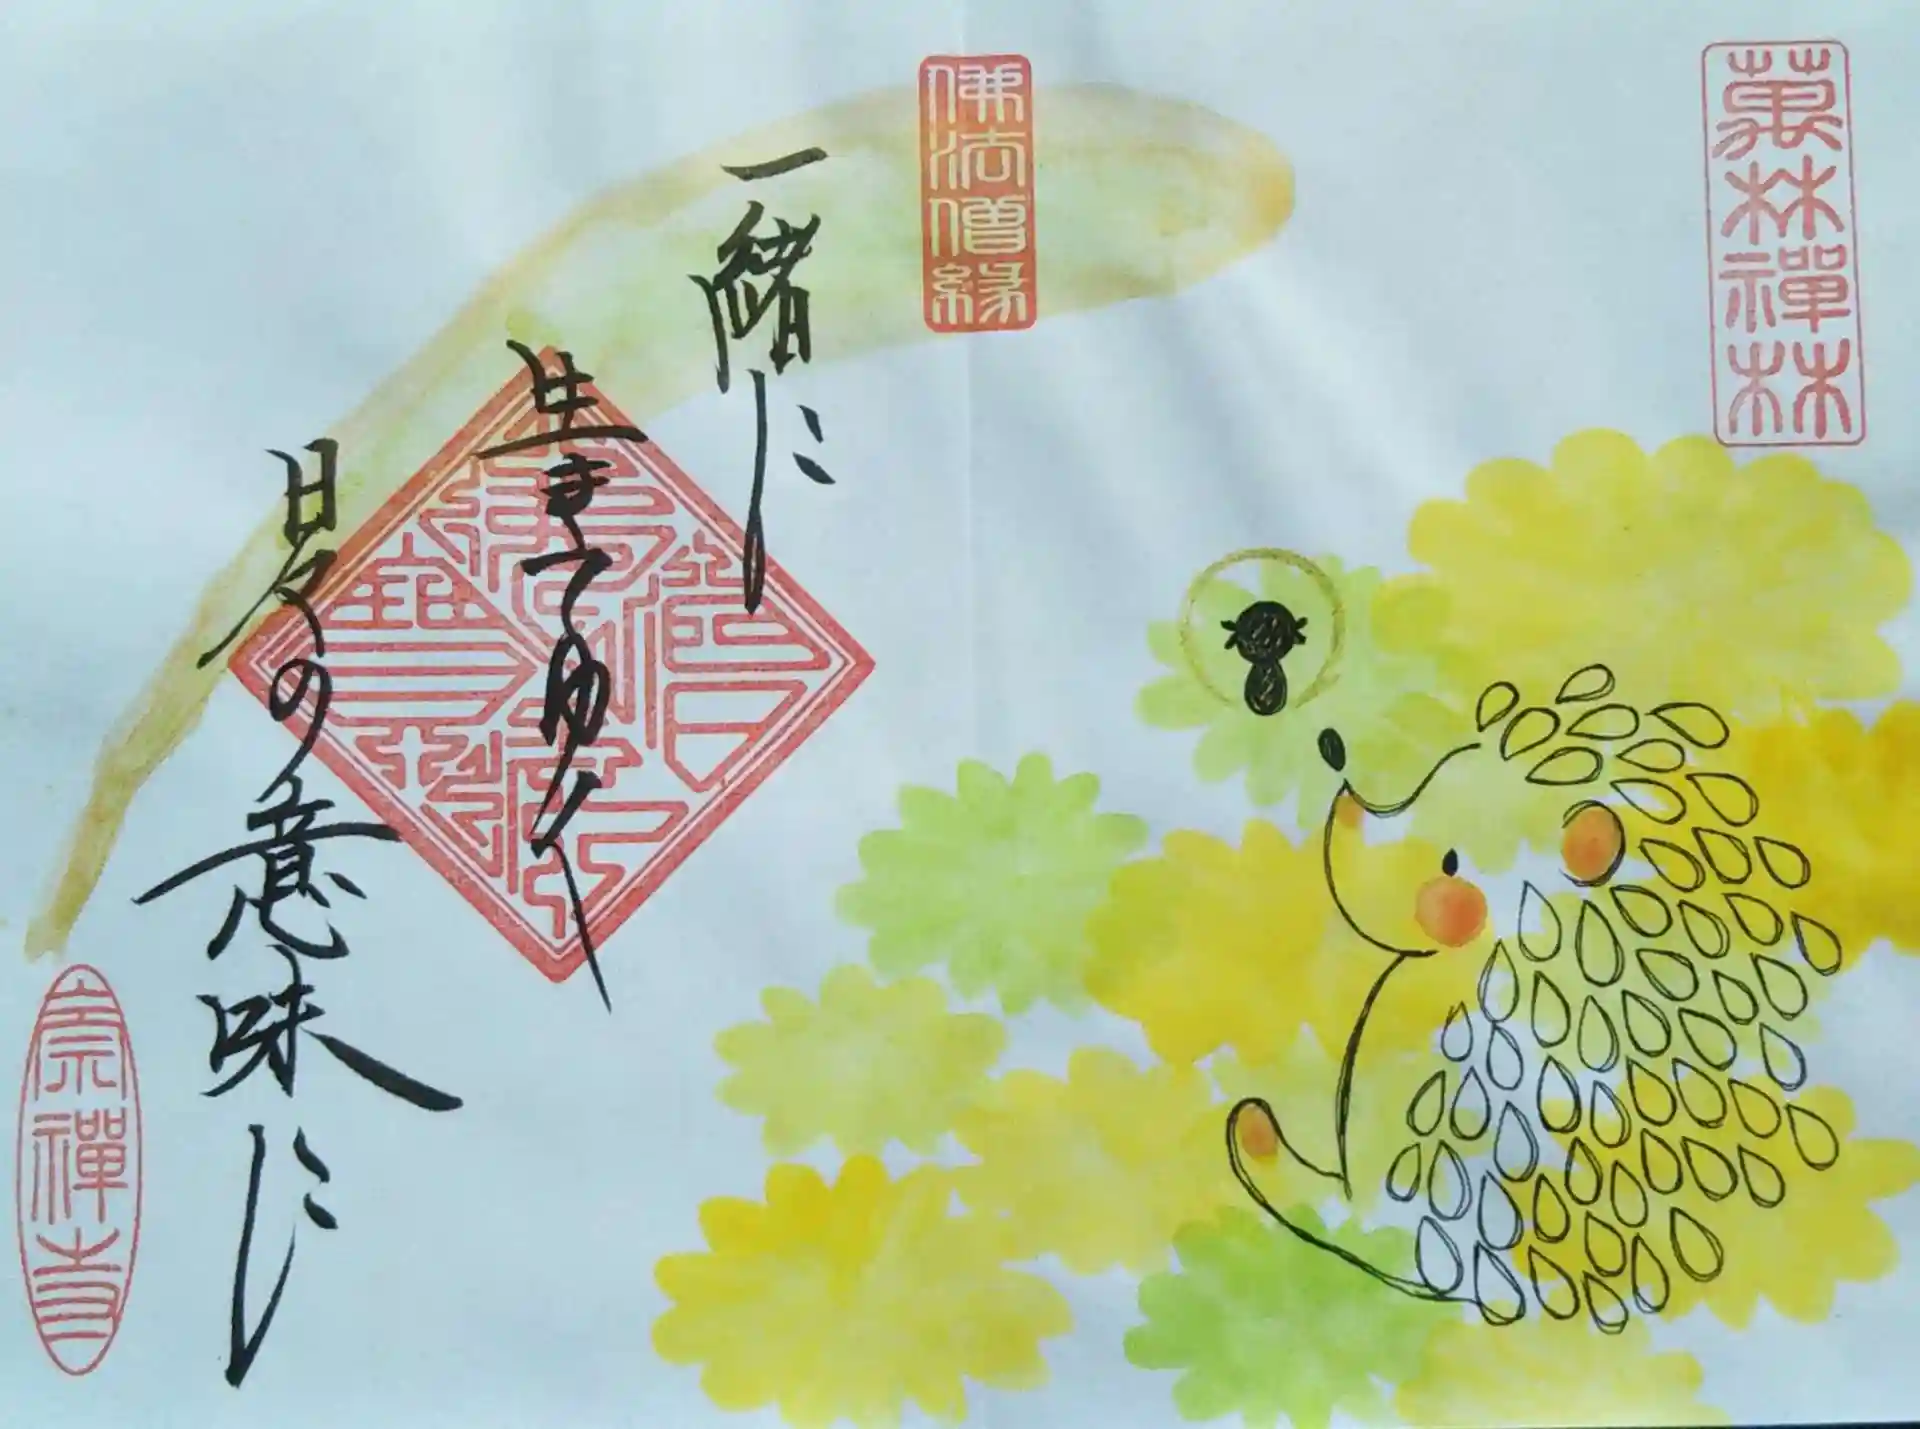 萬林禪林
佛法僧縁
一緒に
生きてゆく
日々の意味に
崇禪寺